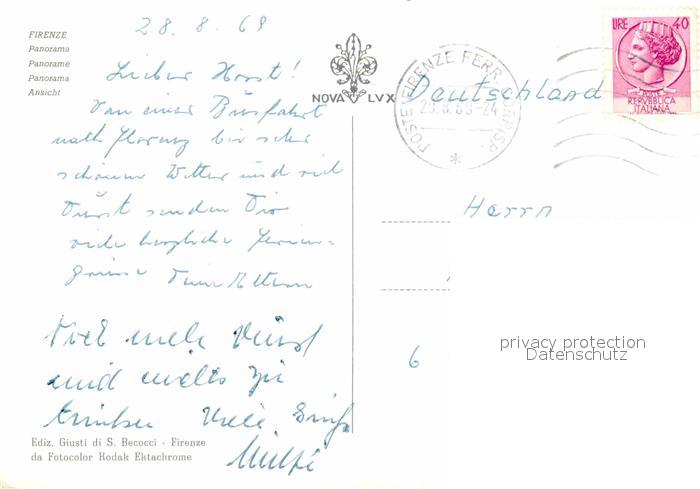 FIRENZE
Panorama
Panorame
Panorama
Ansicht
28.8.69
Lieber Horst!
Von einer Busfahrt
nach Florenz bei sehr
schönem Wetter und viel
Durst senden Dir
viele herzliche Ferien-
grüsse Deine Eltern
Noch mehr Durst
und nichts zu
trinken Viele Grüße
NOVA LVX
POSTE FIRENZE FERR. CORRISP.
LIRE 40
POSTE
REPVBBLICA
ITALIANA
Deutschland
Herrn
6
privacy protection
Datenschutz
Ediz. Giusti di S. Becocci - Firenze
da Fotocolor Kodak Ektachrome